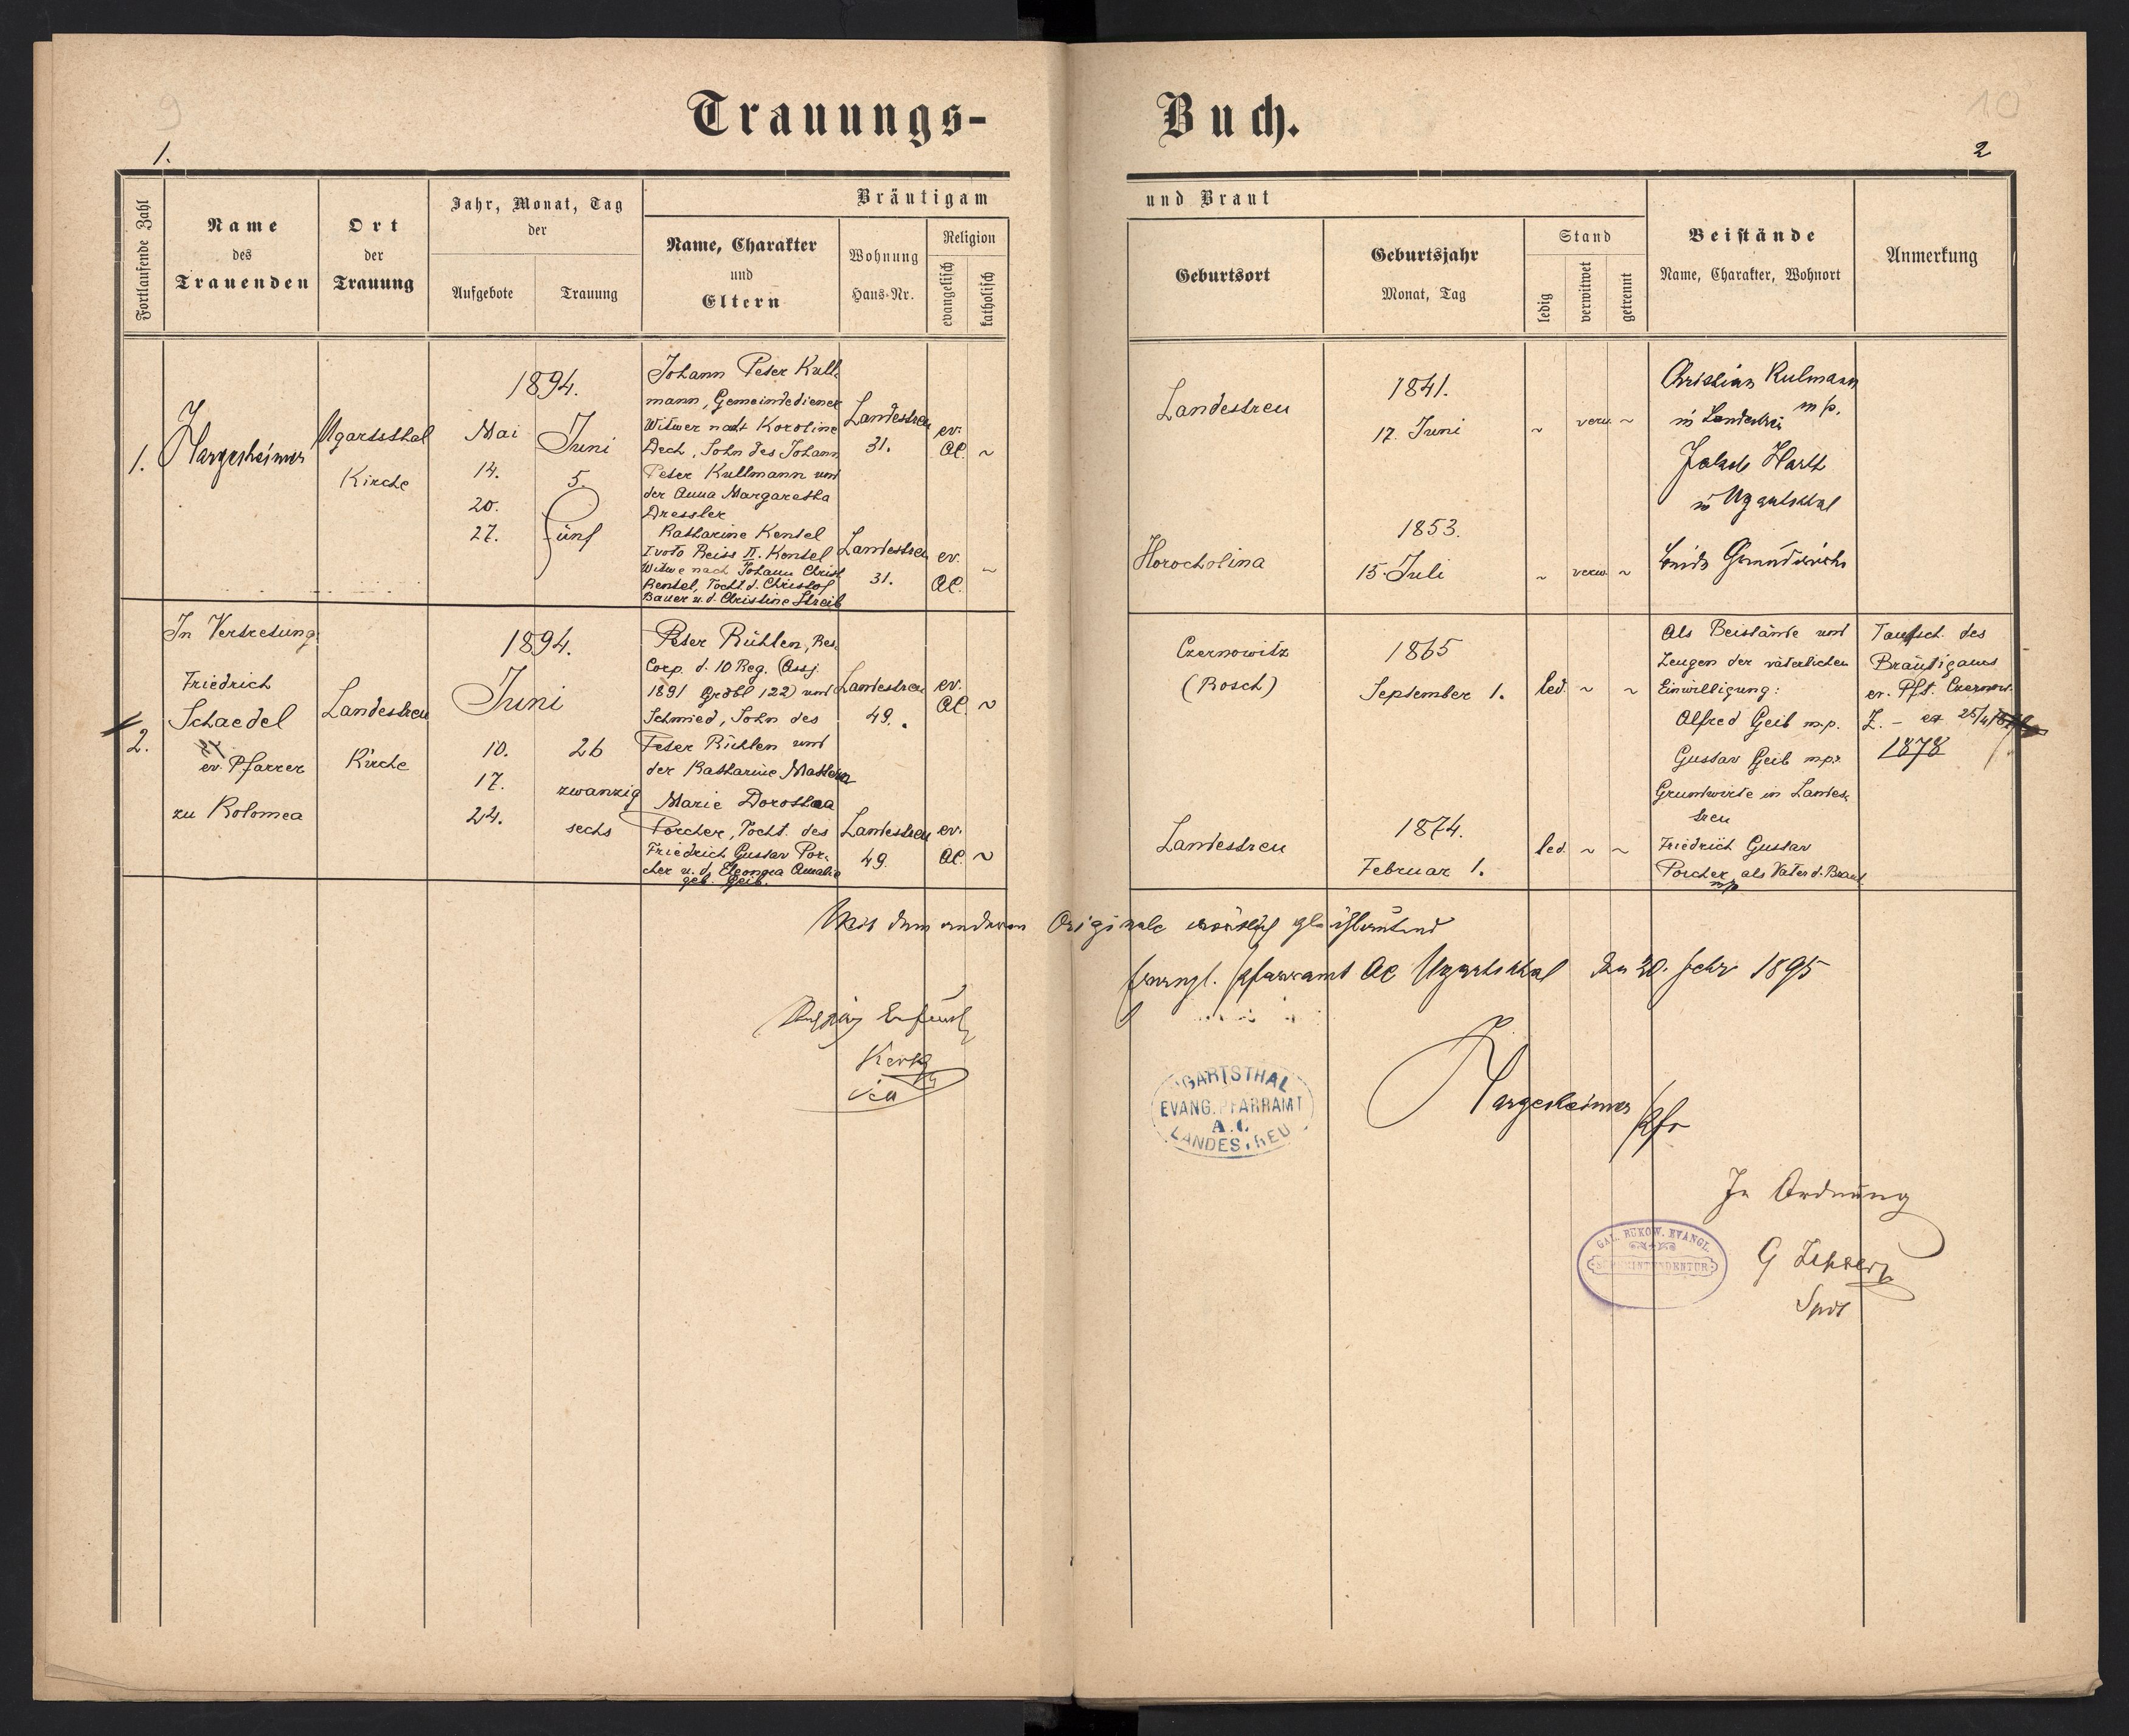 9
10
Trauungs-
Buch.
1.
2
Fortlaufende Zahl
Name
des
Trauenden
Ort
der
Trauung
Jahr, Monat, Tag
der
Aufgebote
Trauung
Bräutigam
Name, Charakter
und
Eltern
Wohnung
Haus-Nr.
Religion
evangelisch
katholisch
und Braut
Geburtsort
Geburtsjahr
Monat, Tag
Stand
ledig
verwitwet
getrennt
Beistände
Name, Charakter, Wohnort
Anmerkung
1.
Hargesheimer
Ugartsthal
Kirche
1894.
Mai
14.
20.
27.
Juni
5.
fünf
Johann Peter Kull-
mann, Gemeindediener
Witwer nach Karoline
Dech, Sohn des Johann
Peter Kullmann und
der Anna Margaretha
Dressler
Landestreu
31.
ev.
AC. ~
Katharine Kentel
I voto Reiss II. Kentel
Witwe nach Johann Christ
Kentel, Tocht. d. Christof
Bauer u. d. Christine Streib
Landestreu
31.
ev.
AC. ~
Landestreu
1841.
17. Juni
~ verw ~
Christian Kulmann
m/p.
in Landestreu
Jakob Harth
in Ugartsthal
Horocholina
1853.
15. Juli
~ verw. ~
beide Grundwirthe
2.
In Vertretung
Friedrich
Schaedel
ev. Pfarrer
zu Kolomea
Landestreu
Kirche
1894.
Juni
10.
17.
24.
26
zwanzig
sechs
Peter Rühlen, Res.
Corp. d. 10 Reg. (Assj.
1891 Grdbl 122) und
Schmied, Sohn des
Peter Rühlen und
der Katharine Mathein
Landestreu
49.
ev.
AC. ~
Marie Dorothea
Porcher, Tocht. des
Friedrich Gustav Por-
cher u. d. Eleonora Amalie
geb. Geib.
Landestreu
49.
ev.
AC. ~
Czernowitz
(Rosch)
1865
September 1.
led. ~ ~
Als Beistände und
Zeugen der väterlichen
Einwilligung:
Alfred Geib m.p.
Gustav Geib mpr
Grundwirte in Landes-
treu
Taufsch. des
Bräutigams
ev. Pft. Czernow.
Z. - ex 25/4
1878
Landestreu
1874.
Februar 1.
led. ~ ~
Friedrich Gustav
Porcher, als Vater d. Braut
mp
Mit dem anderen Originale wörtlich gleichlautend
Evangl. Pfarramt AC Ugartsthal den 20. Jehr 1895
GARTSTHAL
EVANG. PFARRAMT
A.C.
LANDESTREU
Hargesheimer
Pfr
In Ordnung
GAL. BUKOW. EVANGL.
SUPERINTENDENTUR
Spdt